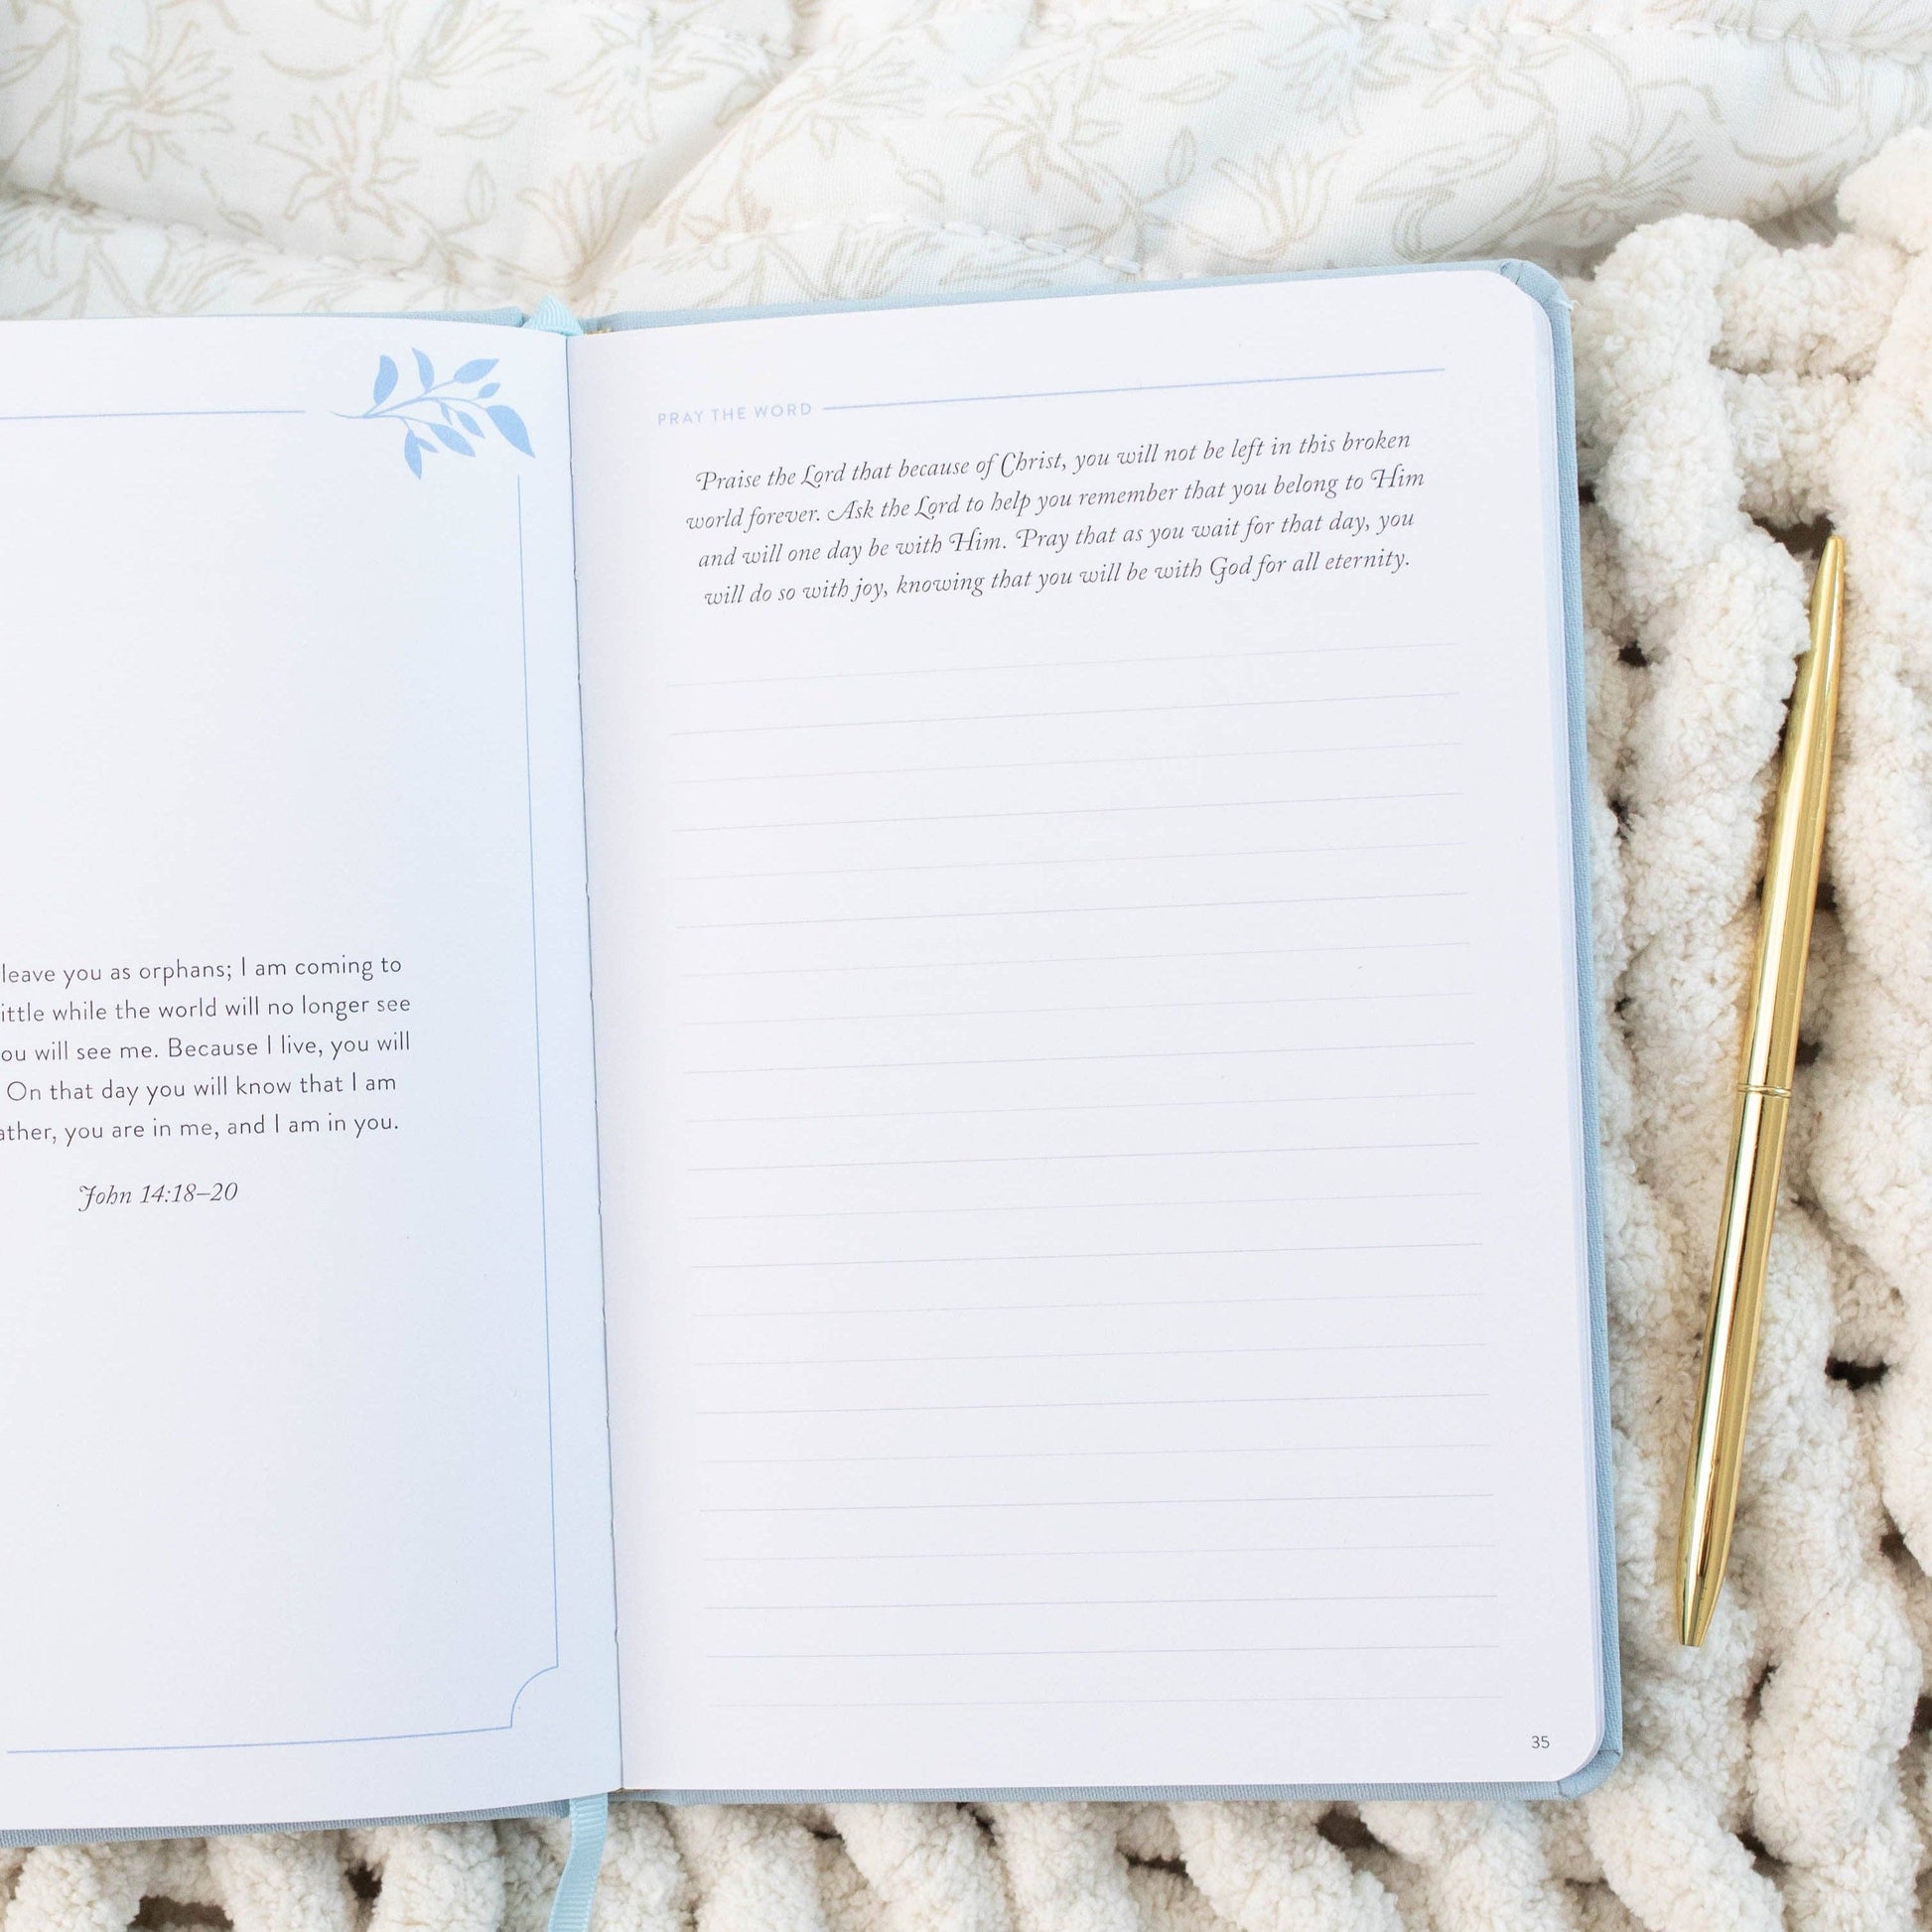 leave you as orphans; I am coming to
little while the world will no longer see
you will see me. Because I live, you will
On that day you will know that I am
Father, you are in me, and I am in you.
John 14:18–20
PRAY THE WORD
Praise the Lord that because of Christ, you will not be left in this broken
world forever. Ask the Lord to help you remember that you belong to Him
and will one day be with Him. Pray that as you wait for that day, you
will do so with joy, knowing that you will be with God for all eternity.
35